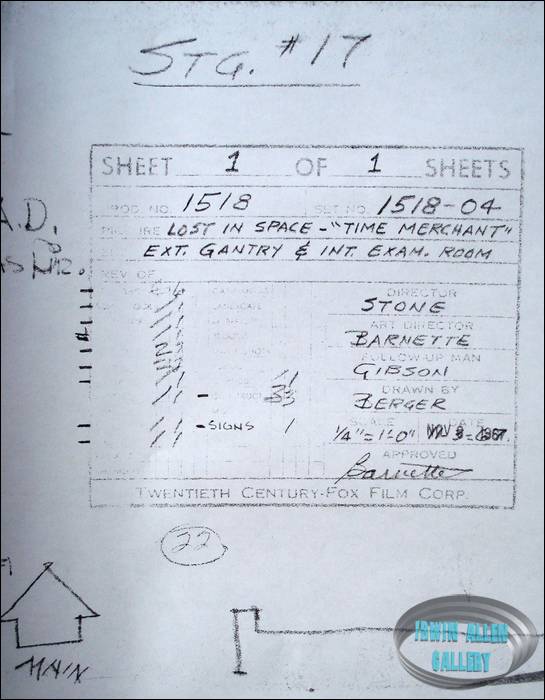 STG. #17
SHEET 1 OF 1 SHEETS
PROD. NO. 1518 SET NO. 1518-04
PICTURE LOST IN SPACE - "TIME MERCHANT"
EXT. GANTRY & INT. EXAM. ROOM
A.D.
REV OF
DIRECTOR
STONE
ART DIRECTOR
BARNETTE
FOLLOW-UP MAN
GIBSON
33
DRAWN BY
BERGER
- SIGNS 1
SCALE DATE
1/4" = 1'-0" NOV 1967
APPROVED
Barnette
TWENTIETH CENTURY-FOX FILM CORP.
22
MAIN
IRWIN ALLEN
GALLERY